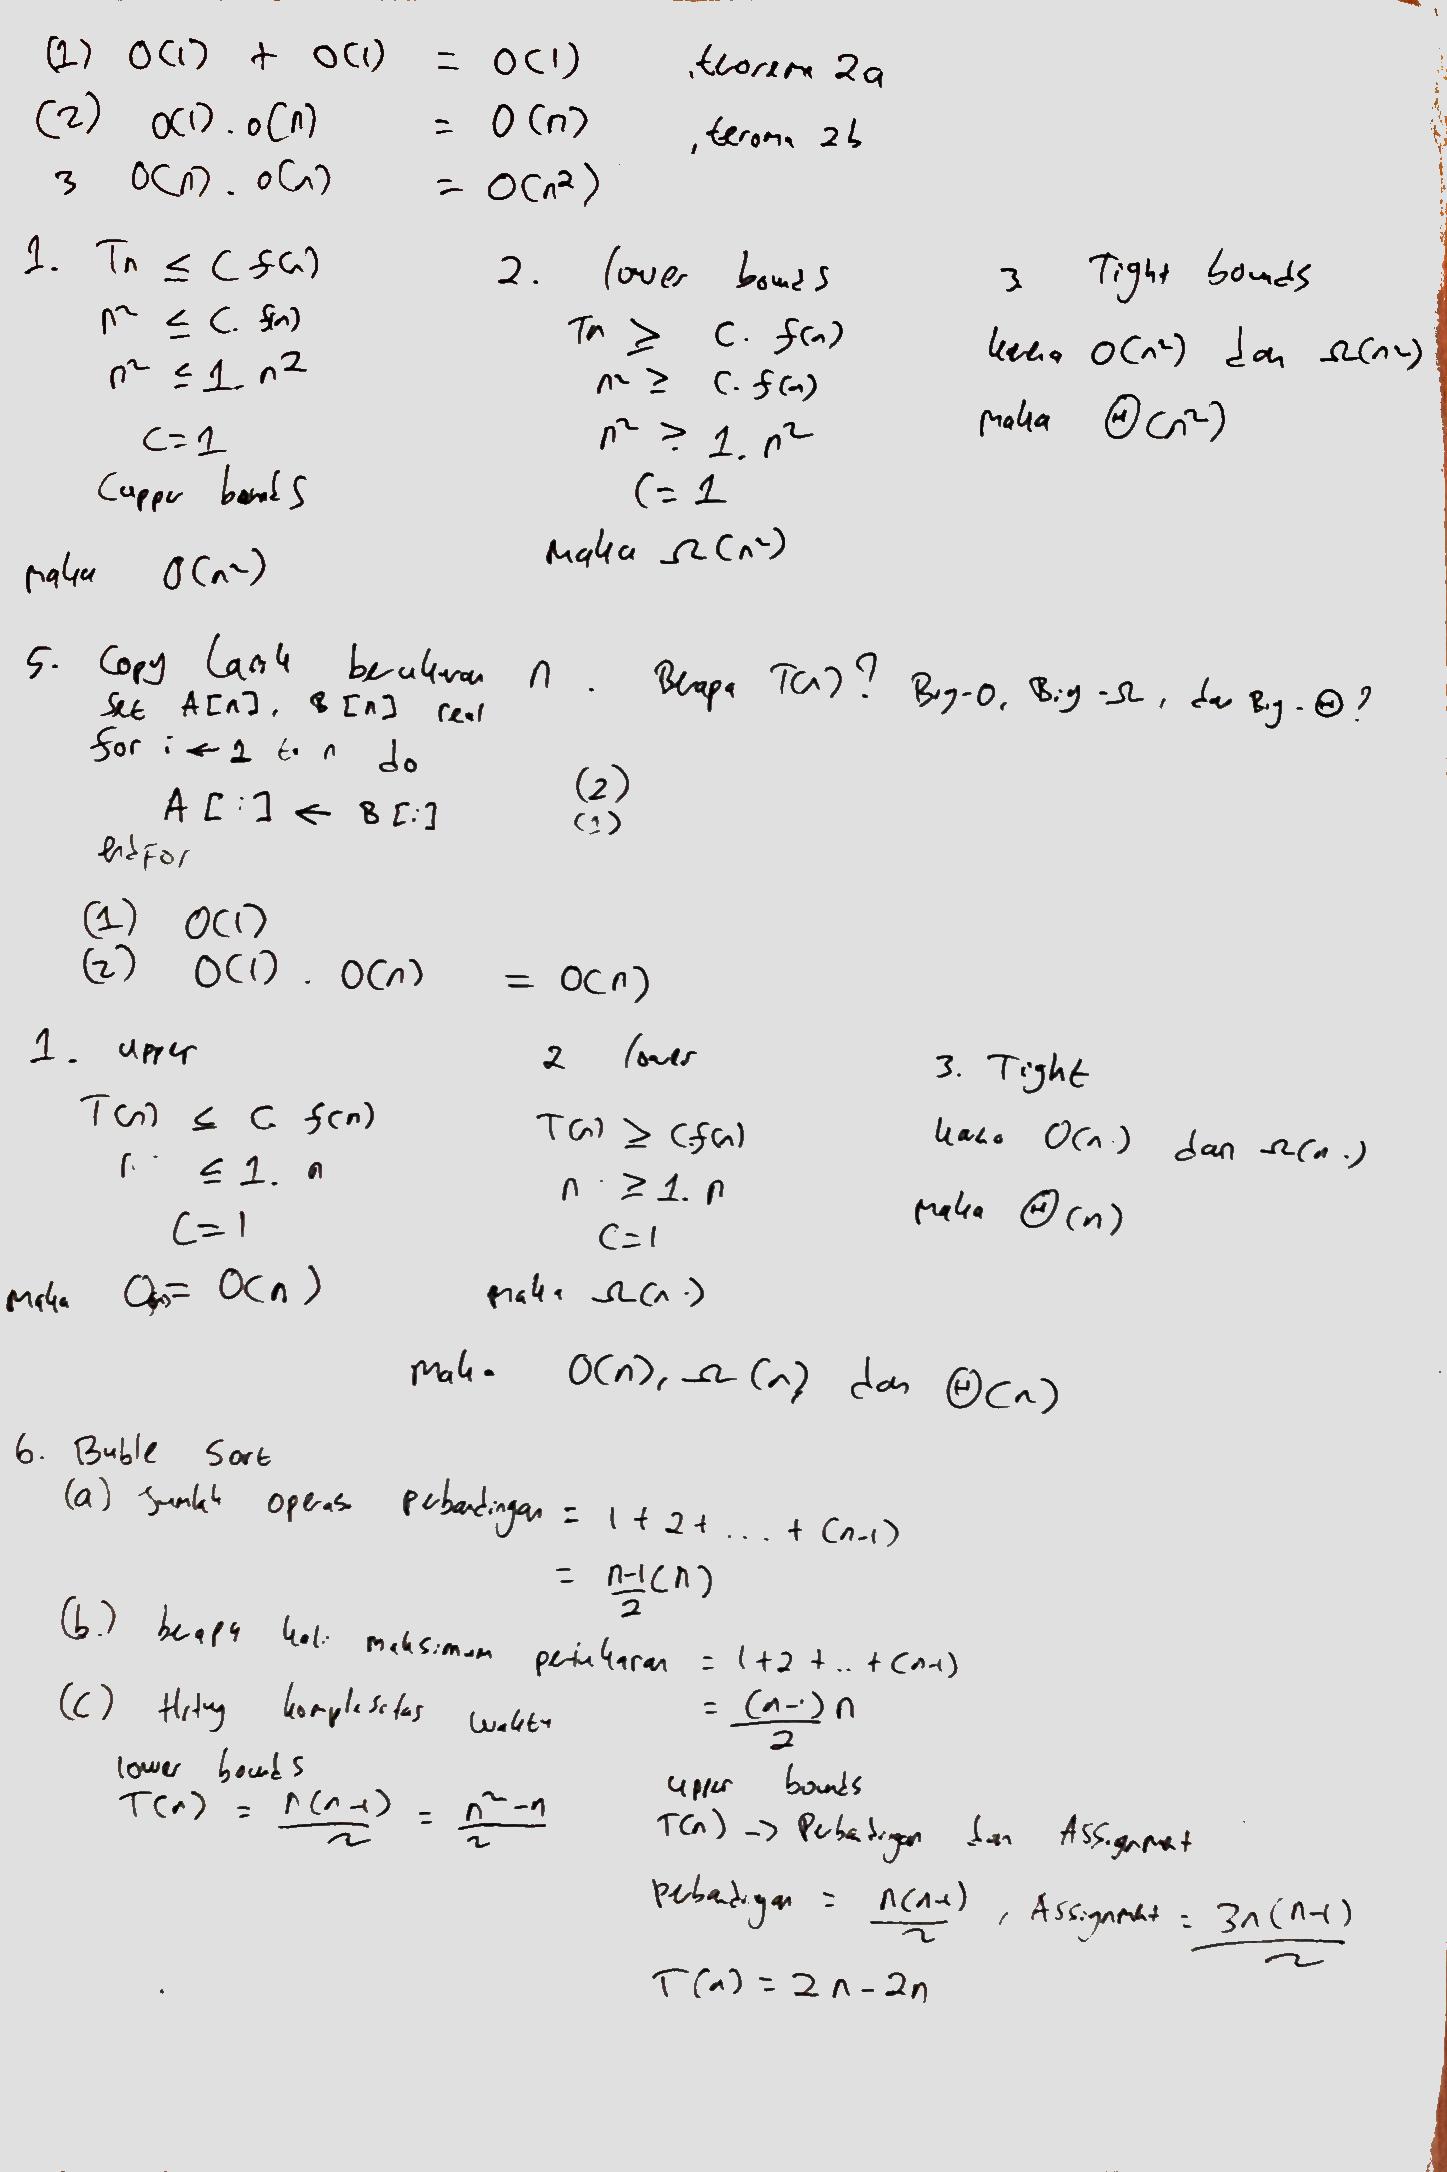 (1) O(1) + O(1) = O(1) , teorema 2a
(2) O(1) . O(n) = O(n) , teroma 2b
3 O(n) . O(n) = O(n²)
1. Tn ≤ C f(n)
n² ≤ C. f(n)
n² ≤ 1. n²
C=1
(upper bounds
maka O(n²)
2. lower bounds
Tn ≥ C. f(n)
n² ≥ C. f(n)
n² ≥ 1. n²
C= 1
Maka Ω(n²)
3 Tight bounds
karena O(n²) dan Ω(n²)
maka Θ(n²)
5. Copy larik berukuran n . Berapa T(n)? Big-O, Big-Ω, dan Big-Θ?
Set A[n], B[n] real
for i ← 1 to n do (2)
A[i] ← B[i] (1)
EndFor
(1) O(1)
(2) O(1) . O(n) = O(n)
1. upper
T(n) ≤ C f(n)
n ≤ 1. n
C=1
maka O(n)= O(n)
2 lower
T(n) ≥ C f(n)
n ≥ 1. n
C=1
maka Ω(n)
3. Tight
O(n) dan Ω(n)
maka Θ(n)
maka O(n), Ω(n) dan Θ(n)
6. Buble Sort
(a) Jumlah operasi perbandingan = 1+2+ ... + (n-1)
= n-1/2 (n)
(b.) berapa kali maksimum pertukaran = 1+2+..+(n-1)
= (n-1)n/2
(c) Hitung kompleksitas waktu
lower bounds
T(n) = n(n-1)/2 = n²-n/2
upper bounds
T(n) -> Perbandingan dan Assignment
perbandingan = n(n-1)/2 , Assignment = 3n(n-1)/2
T(n) = 2n-2n